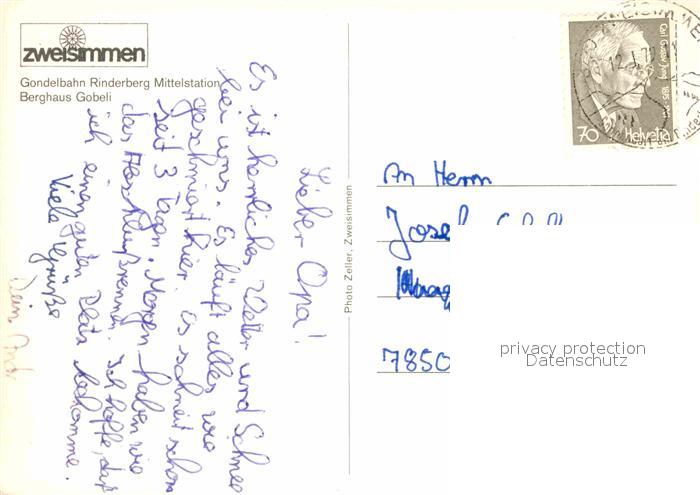 zweisimmen
Gondelbahn Rinderberg Mittelstation
Berghaus Gobeli
Lieber Opa!
Es ist herrliches Wetter und Schnee
bei uns. Es läuft alles wie
geschmiert hier. es schneit schon
seit 3 Tagen. Morgen haben wir
das Abschlußrennen. ich hoffe, daß
ich einen guten Platz bekomme.
Viele Grüße
Dein
Photo Zeller, Zweisimmen
Carl Gustav Jung 1875-1961
70 Helvetia
An Herrn
Josef
7850
privacy protection
Datenschutz